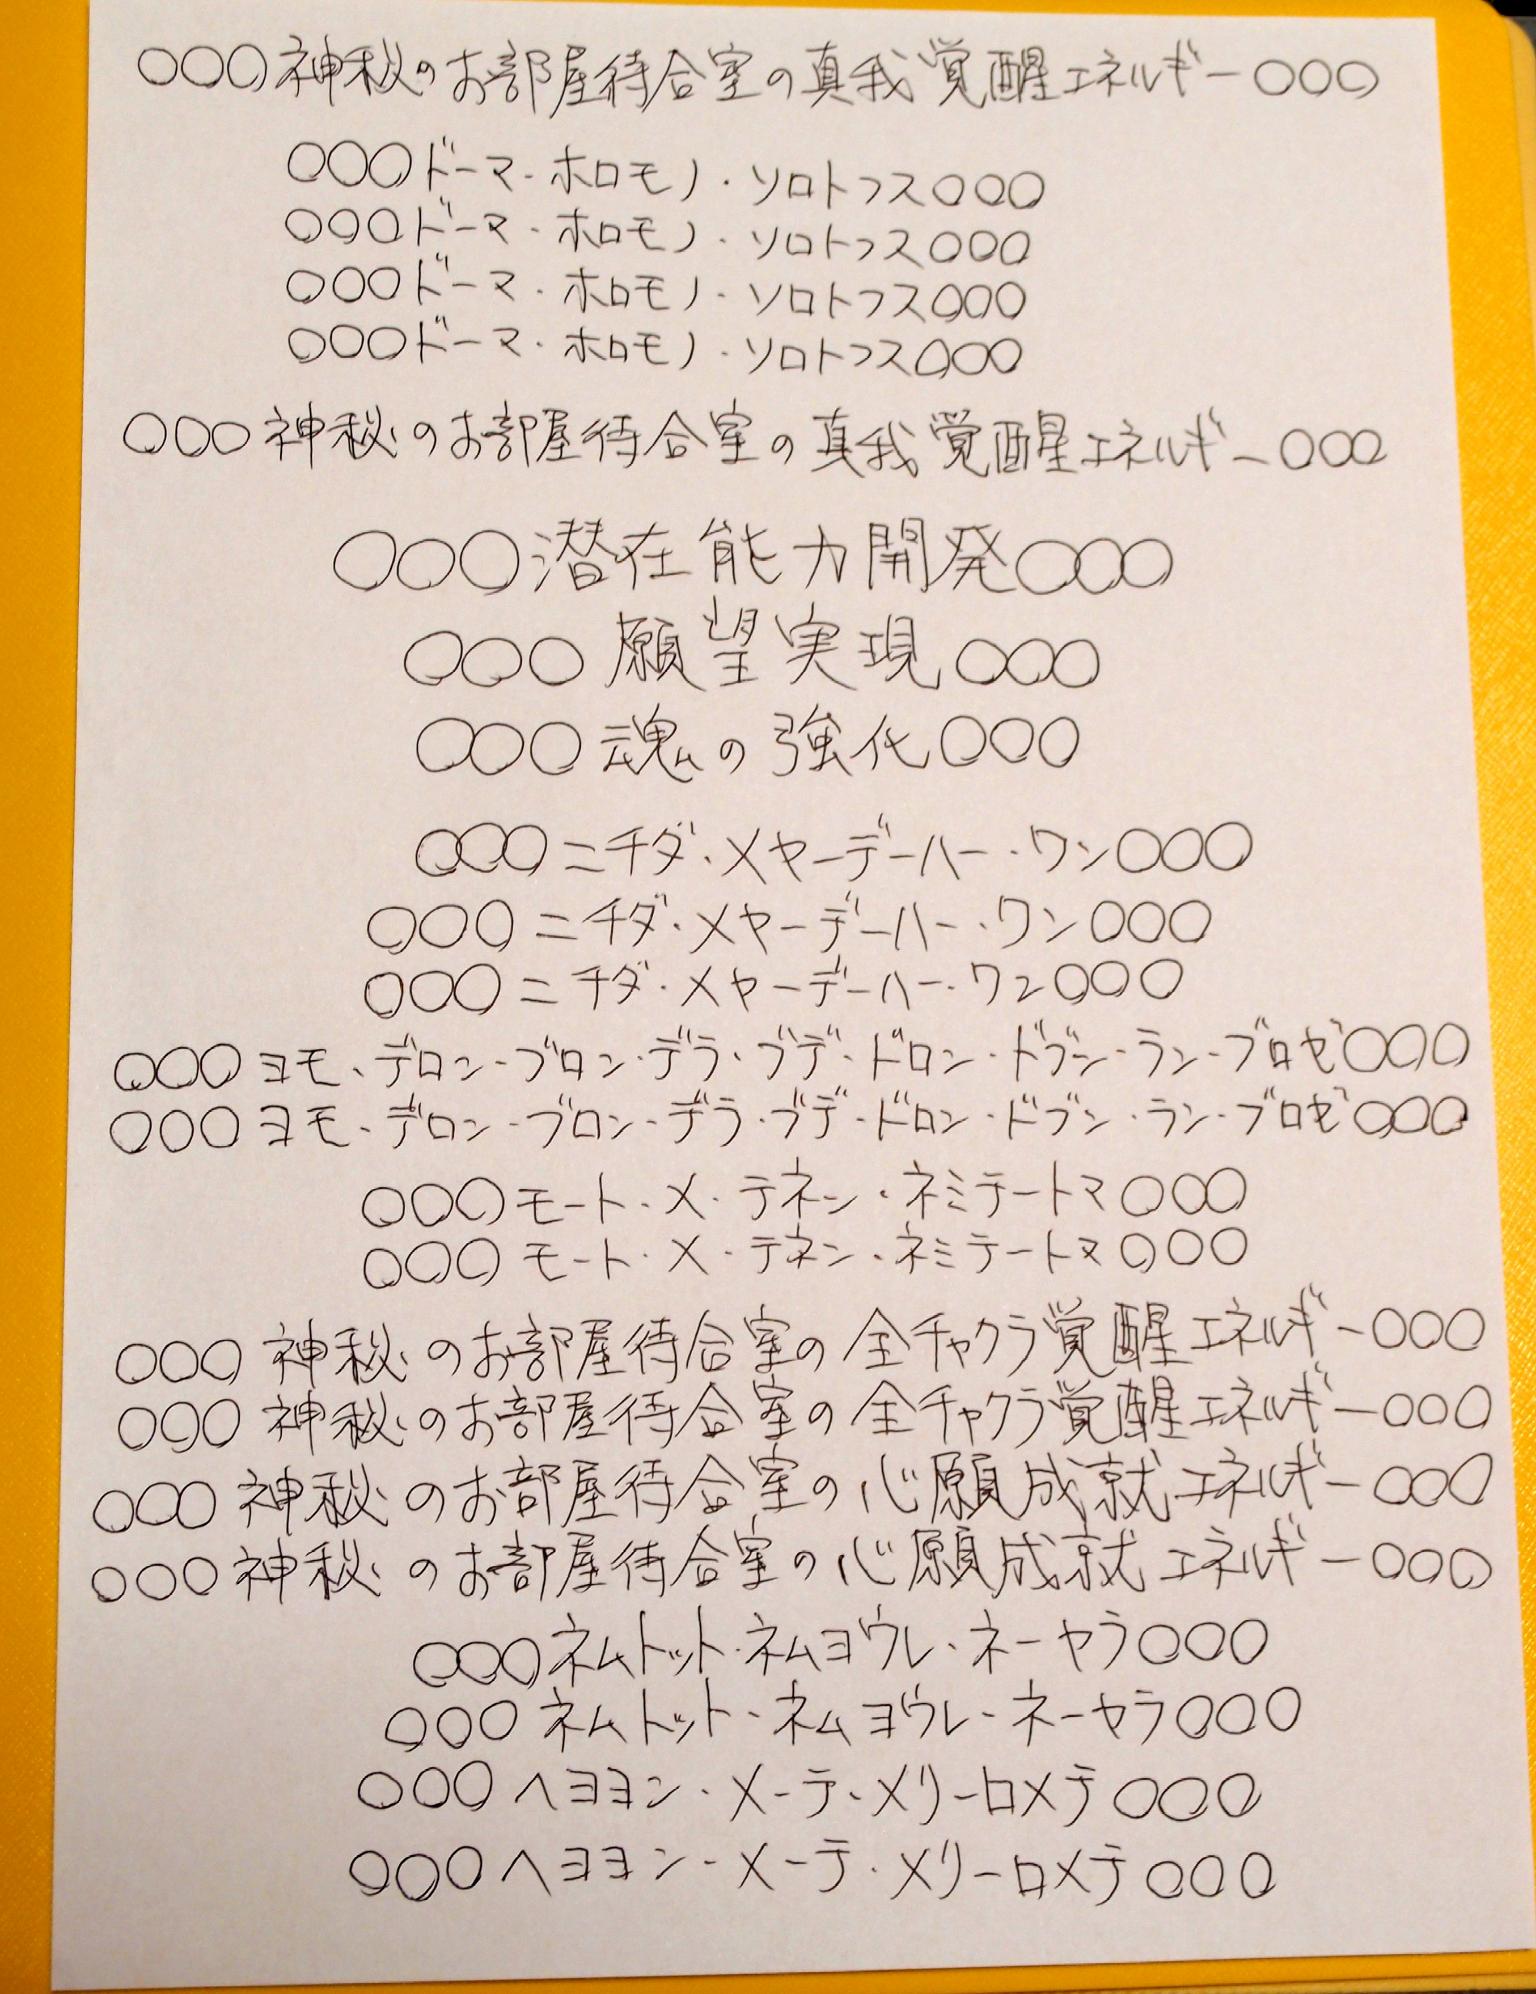 ○○○神秘のお部屋待合室の真我覚醒エネルギー○○○
○○○ドーマ・ホロモノ・ソロトフス○○○
○○○ドーマ・ホロモノ・ソロトフス○○○
○○○ドーマ・ホロモノ・ソロトフス○○○
○○○ドーマ・ホロモノ・ソロトフス○○○
○○○神秘のお部屋待合室の真我覚醒エネルギー○○○
○○○潜在能力開発○○○
○○○願望実現○○○
○○○魂の強化○○○
○○○ニチダ・メヤーデーハー・ワン○○○
○○○ニチダ・メヤーデーハー・ワン○○○
○○○ニチダ・メヤーデーハー・ワン○○○
○○○ヨモ・デロン・ブロン・デラ・ブデ・ドロン・ドブン・ラン・ブロゼ○○○
○○○ヨモ・デロン・ブロン・デラ・ブデ・ドロン・ドブン・ラン・ブロゼ○○○
○○○モート・メ・テネン・ネミテートマ○○○
○○○モート・メ・テネン・ネミテートマ○○○
○○○神秘のお部屋待合室の全チャクラ覚醒エネルギー○○○
○○○神秘のお部屋待合室の全チャクラ覚醒エネルギー○○○
○○○神秘のお部屋待合室の心願成就エネルギー○○○
○○○神秘のお部屋待合室の心願成就エネルギー○○○
○○○ネムトット・ネムヨウレ・ネーヤラ○○○
○○○ネムトット・ネムヨウレ・ネーヤラ○○○
○○○ヘヨヨン・メーテ・メリーロメテ○○○
○○○ヘヨヨン・メーテ・メリーロメテ○○○